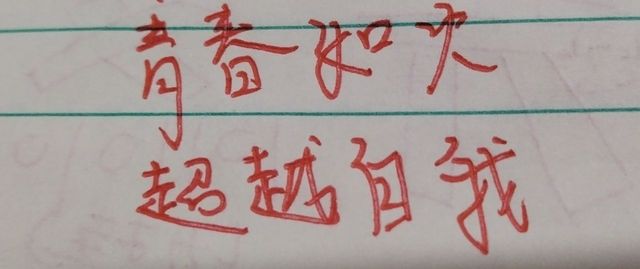 青春如火
超越自我